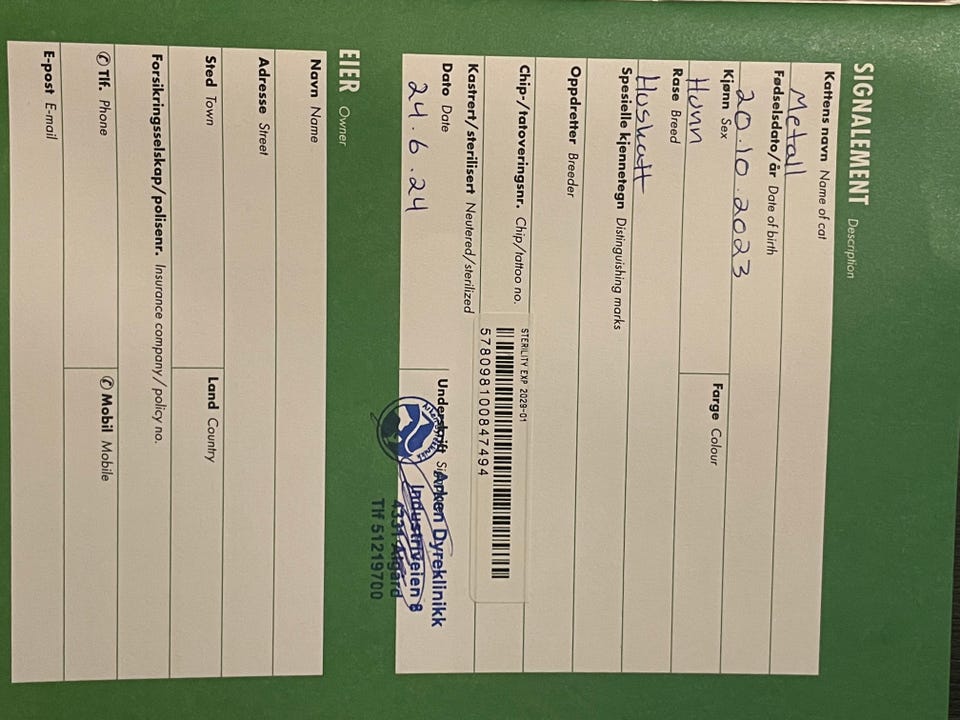 SIGNALEMENT Description
Kattens navn Name of cat
Metall
Fødselsdato/år Date of birth
20.10.2023
Kjønn Sex
Hunn
Farge Colour
Rase Breed
Huskatt
Spesielle kjennetegn Distinguishing marks
Oppdretter Breeder
Chip-/tatoveringsnr. Chip/tattoo no.
STERILITY EXP 2029-01
578098100847494
Kastrert/sterilisert Neutered/sterilized
Dato Date
24.6.24
Underskrift
Arken Dyreklinikk
Industriveien 8
4331 Ålgård
Tlf 51219700
EIER Owner
Navn Name
Adresse Street
Sted Town
Land Country
Forsikringsselskap/polisenr. Insurance company/policy no.
Tlf. Phone
Mobil Mobile
E-post E-mail